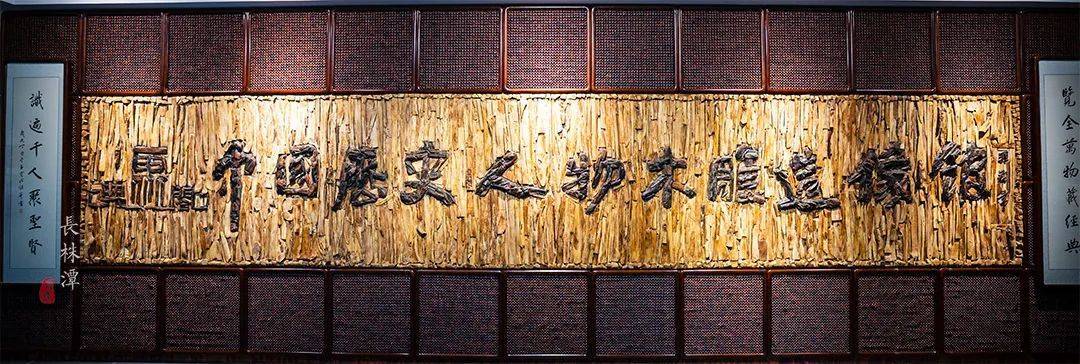 識遍千人聚聖賢
中國歷史人物木雕造像館
覽全萬物藏經典
長株潭